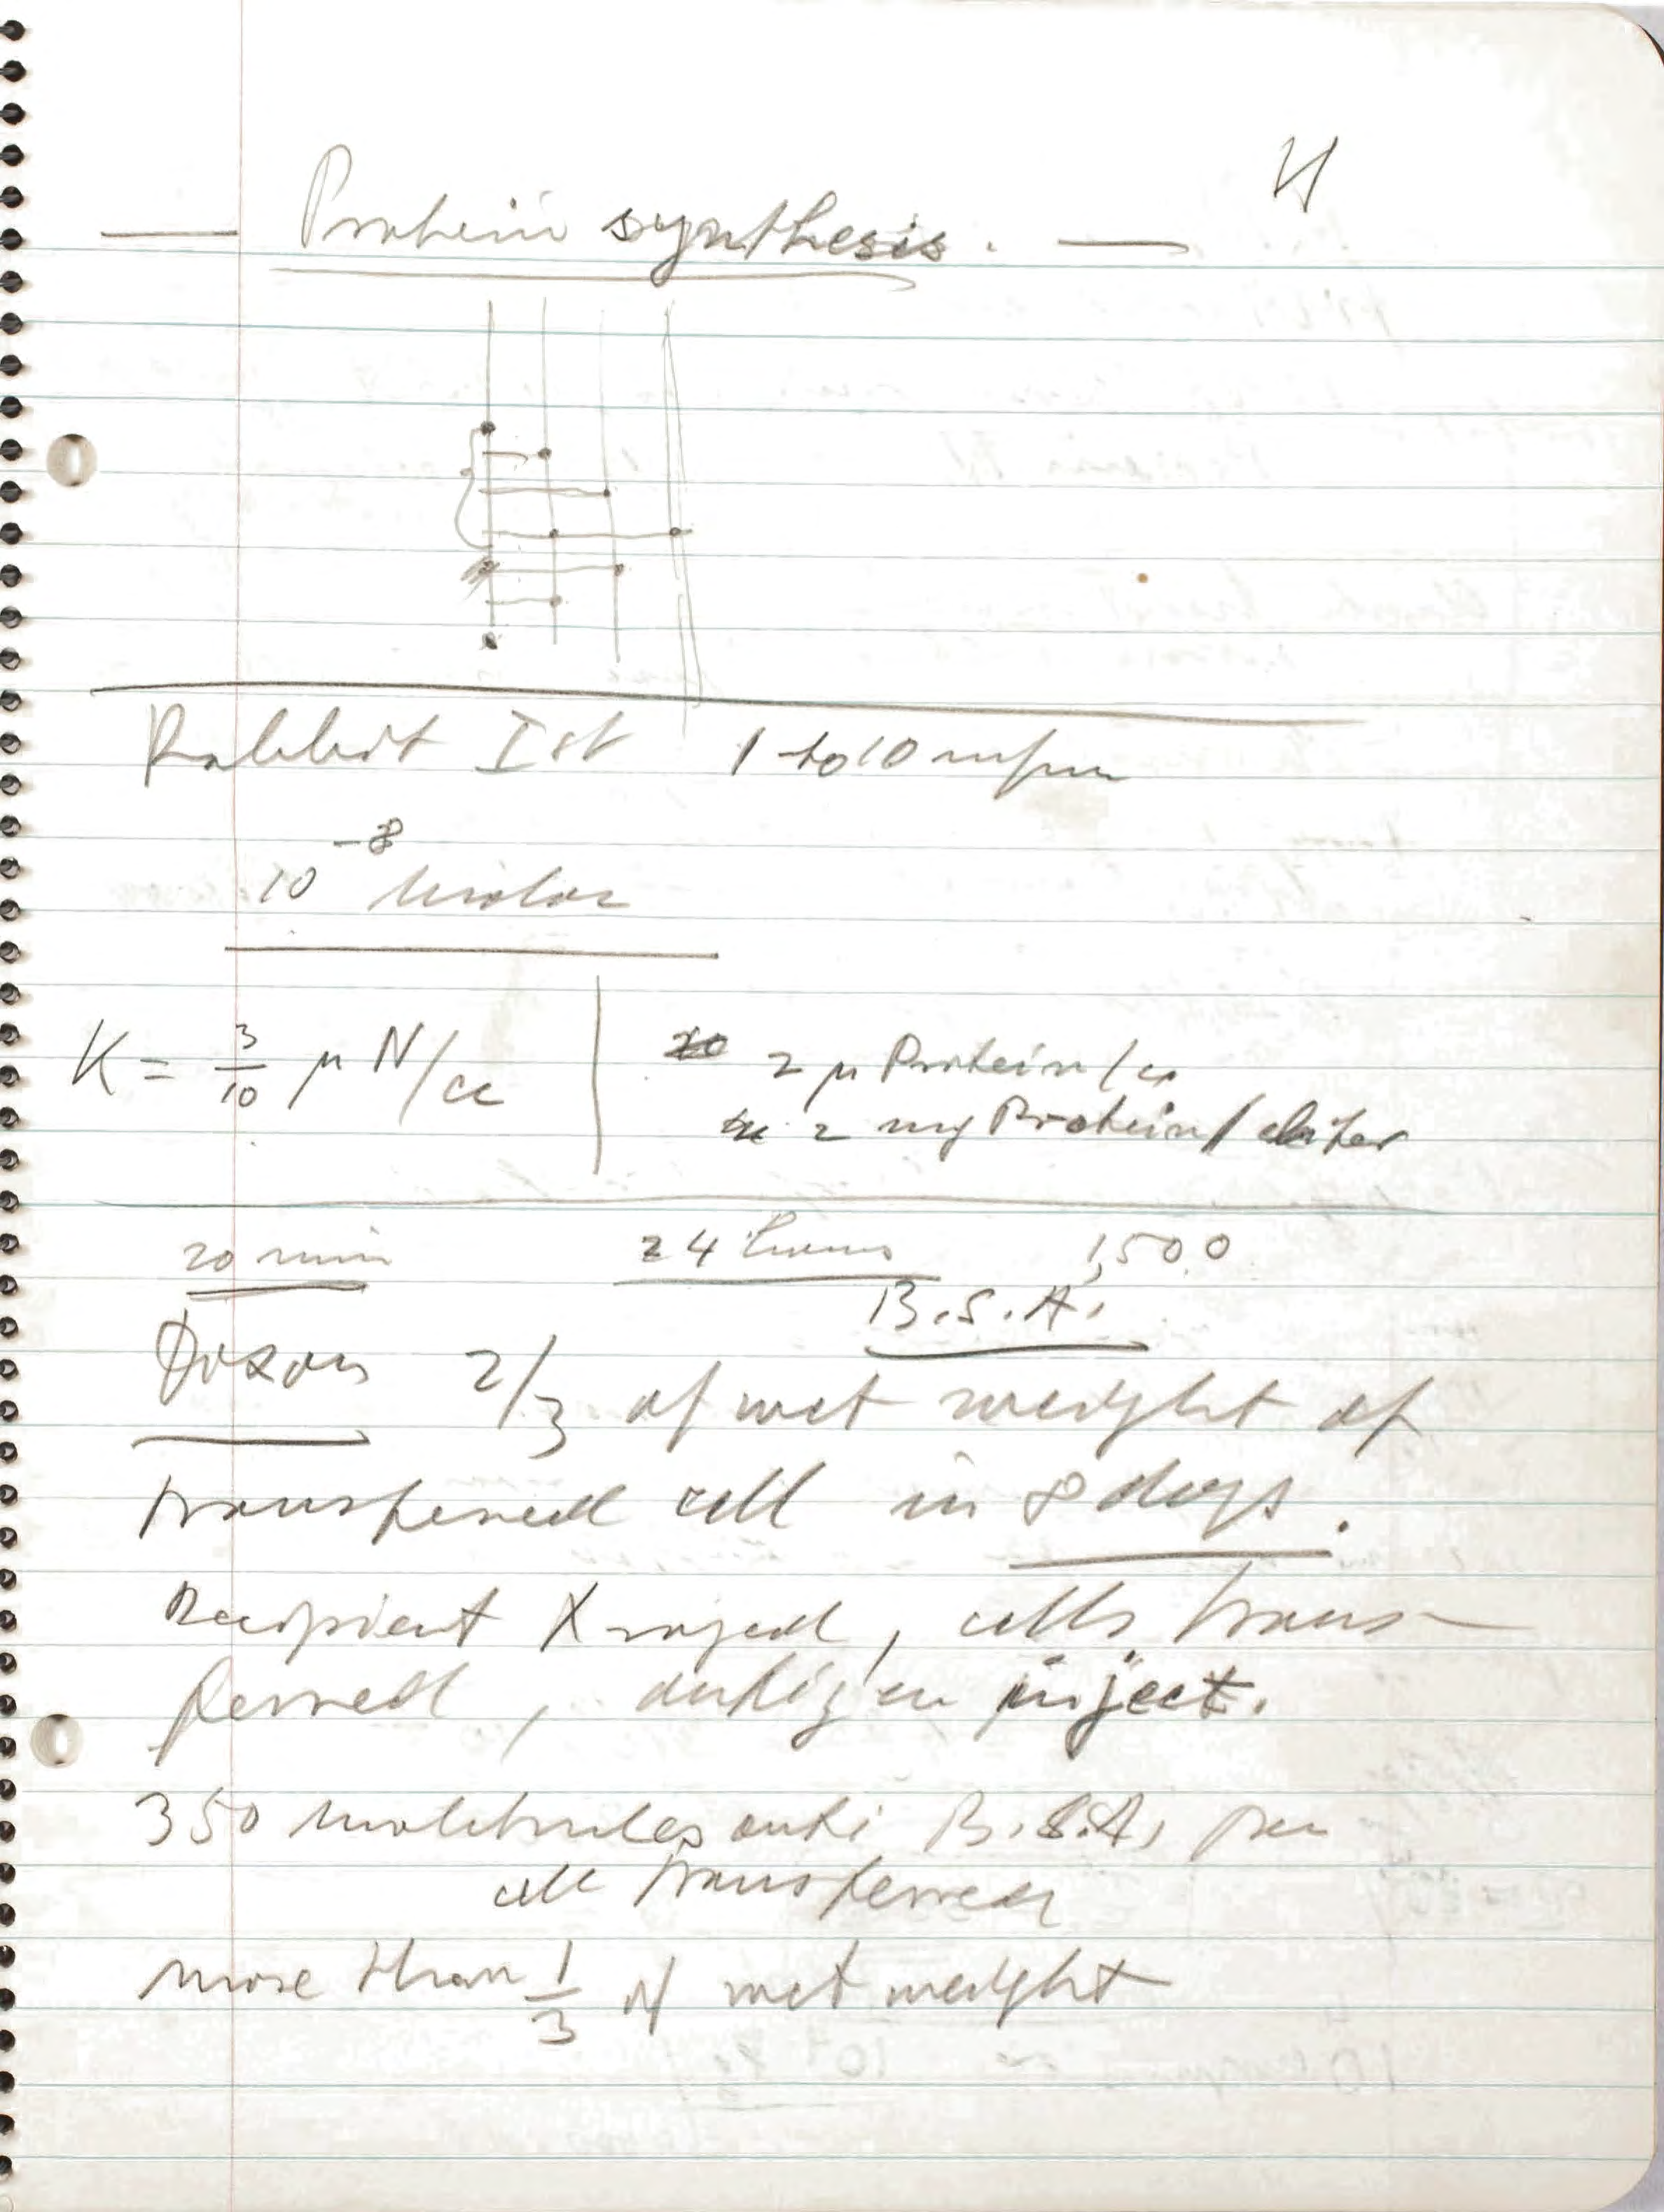 4
Protein synthesis.
Rabbit Ist 1 to 10
10⁻⁸ Molar
K = 3/10 μ N/cc
2 μ Protein/cc
2 mg Protein/liter
20 min 24 hours 1,500
B.S.A.
Dixon 2/3 of wet weight of
transferred cell in 8 days.
Recipient X rayed, cells trans-
ferred, antigen inject.
350 molecules anti B.S.A. per
cell transferred
more than 1/3 of wet weight